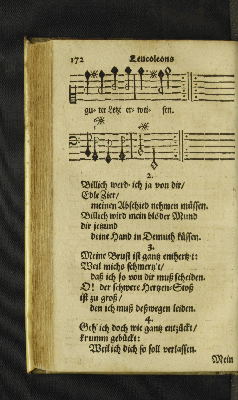 172 Leucoleons
gu- ter Letz er- wei- sen.
2.
Billich werd- ich ja von dir/
Edle Zier/
meinen Abschied nehmen müssen.
Billich wird mein blöder Mund
dir jetzund
deine Hand in Demuth küssen.
3.
Meine Brust ist gantz
Weil michs schmertz't/
daß ich so von dir muß scheiden.
O! der schwere Hertzen-Stoß
ist zu groß/
den ich muß deßwegen leiden.
4.
Geh' ich doch wie gantz entzückt/
krumm gebückt:
Weil ich dich so soll verlassen.
Mein